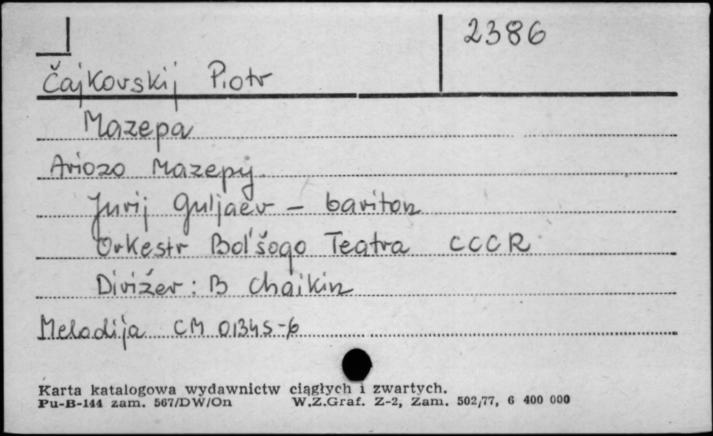 2386
Čajkovskij Piotr
Mazepa
Ariozo Mazepy
Jurij Guljaev – bariton
Orkestr Bol'šogo Teatra CCCR
Dirižer: B Chaikin
Melodija CM 01345-6
Karta katalogowa wydawnictw ciągłych i zwartych.
Pu-B-144 zam. 567/DW/On W.Z.Graf. Z-2, Zam. 502/77, 6 400 000